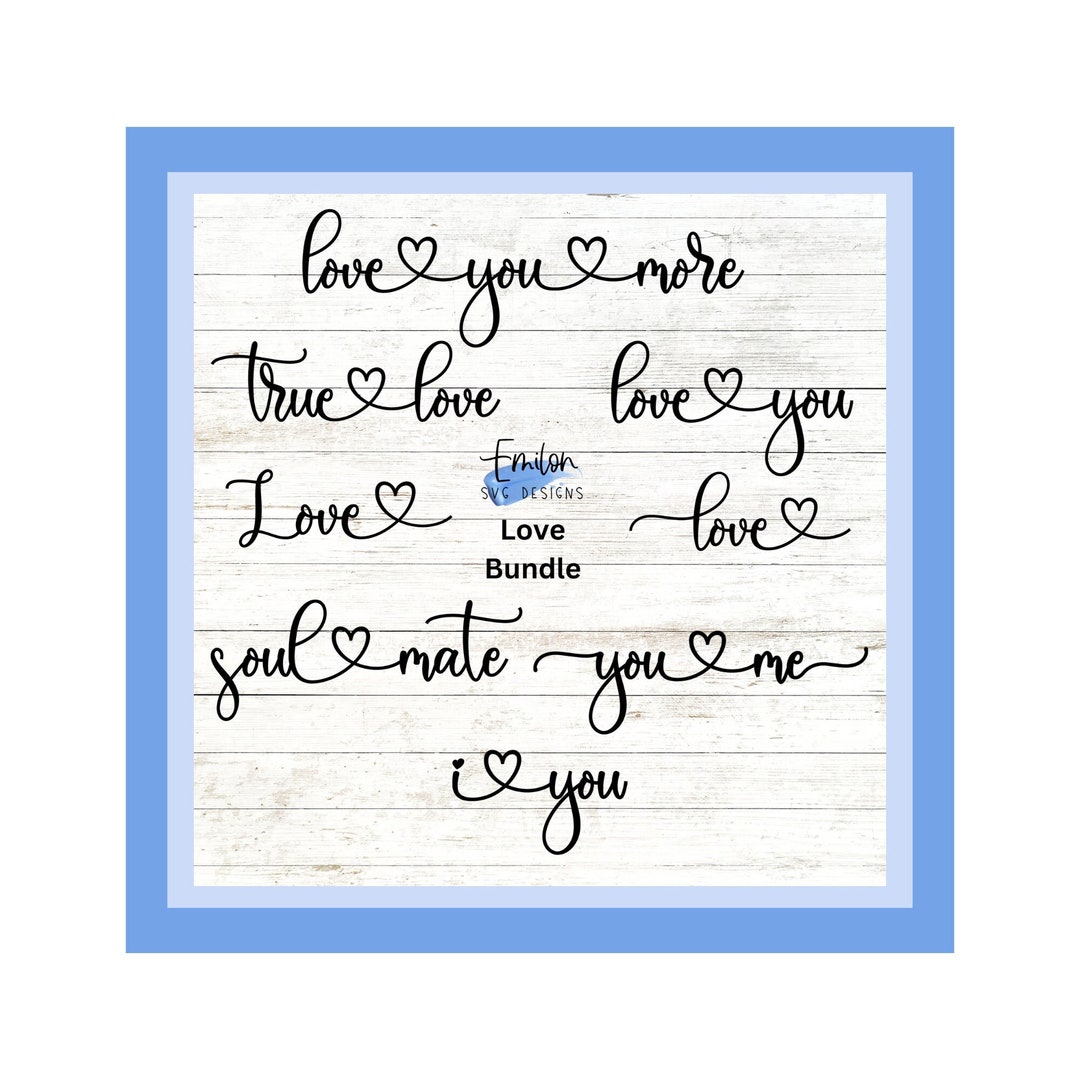 love you more
true love
love you
Emilon
SVG DESIGNS
Love
Bundle
Love
love
soul mate
you me
i you